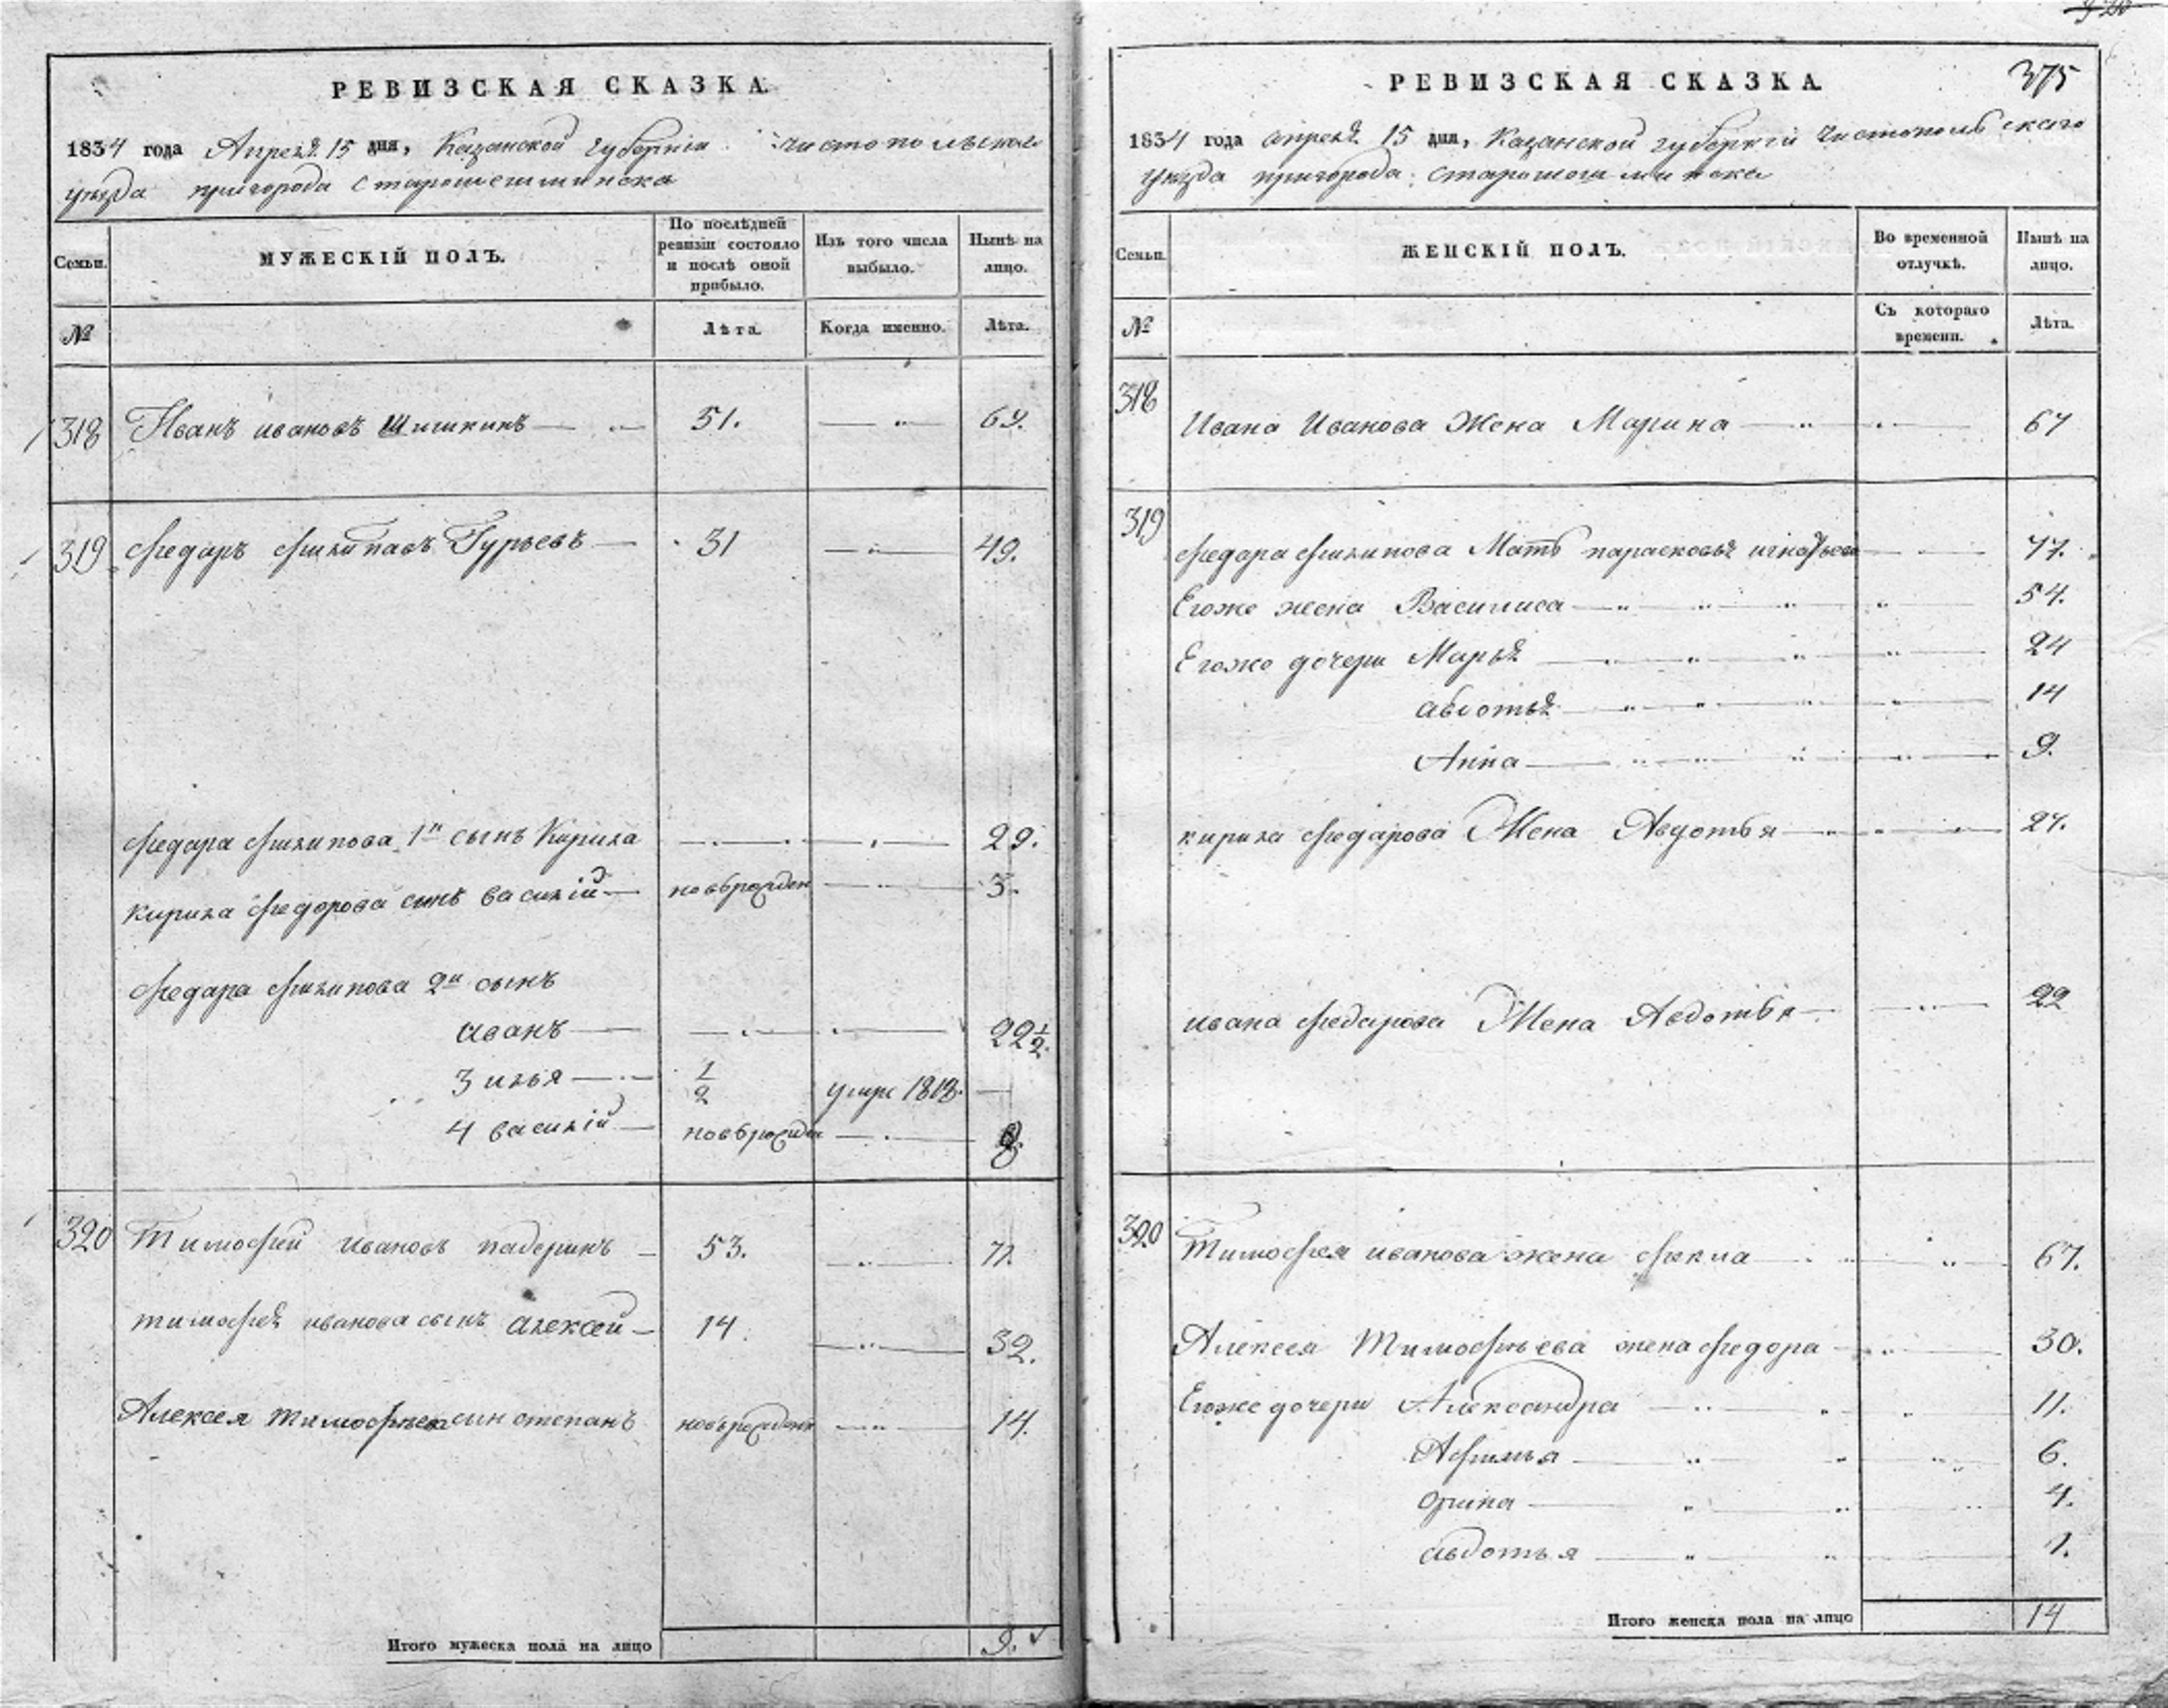 РЕВИЗСКАЯ СКАЗКА.
1834 года Апреля 15 дня, Казанской губернии Чистопольскаго
уезда пригорода Старошешминска
Семьи.
МУЖЕСКІЙ ПОЛЪ.
По послѣдней ревизіи состояло и послѣ оной прибыло.
Изъ того числа выбыло.
Нынѣ на лицо.
№
Лѣта.
Когда именно.
Лѣта.
318 Иванъ ивановъ Шишкинъ 51. 69.
319 Федаръ Филиповъ Гурьевъ 31 49.
Федара Филипова 1й сынъ Кирила 29.
Кирила Федорова сынъ василій новорожден 3.
Федара Филипова 2й сынъ
иванъ 22 1/2.
3 илья 1/2 умре 1818.
4 василій новорожден 8
320 Тимофей Ивановъ падеринъ 53. 71.
тимофея иванова сынъ алексей 14. 32.
Алексея тимофьева сын степанъ новорожденъ 14.
Итого мужеска пола на лицо 9.
375
РЕВИЗСКАЯ СКАЗКА.
1834 года апреля 15 дня, Казанской губерніи Чистопольскаго
уезда пригорода Старошешминска
Семьи.
ЖЕНСКІЙ ПОЛЪ.
Во временной отлучкѣ.
Нынѣ на лицо.
№
Съ котораго времени.
Лѣта.
318 Ивана Иванова Жена Марина 67
319 Федара Филипова Мать парасковья игнатьева 77.
Егоже жена Василиса 54.
Егоже дочери Марья 24
авдотья 14
Анна 9.
кирила Федарова Жена Авдотья 27.
ивана Федарова Жена Авдотья 22
320 Тимофея иванова жена Фекла 67.
Алексея Тимофьева жена Федора 30.
Егоже дочери Александра 11.
Афимья 6.
орина 4.
авдотья 1.
Итого женска пола на лицо 14